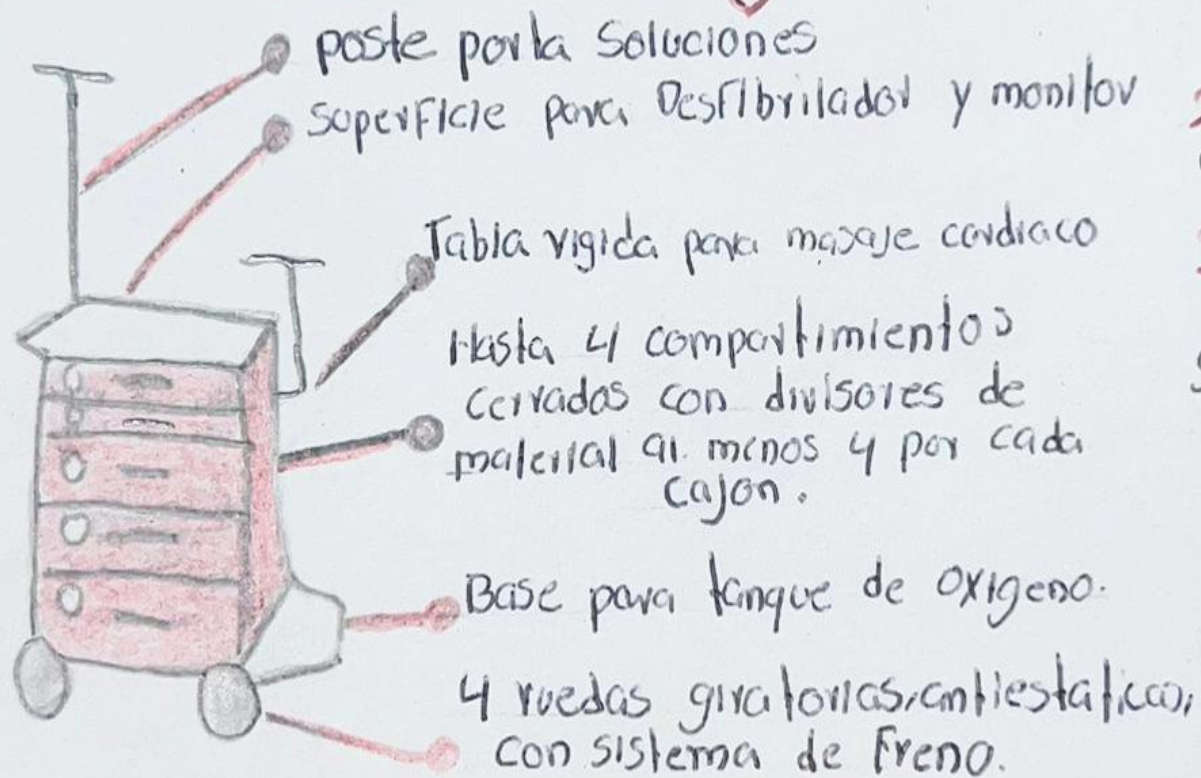 poste porta Soluciones
superficie para Desfibrilador y monitor
Tabla rigida para masaje cardiaco
Hasta 4 compartimientos
cerrados con divisores de
material al menos 4 por cada
cajon.
Base para tanque de oxigeno.
4 ruedas giratorias, antiestaticas,
con sistema de Freno.